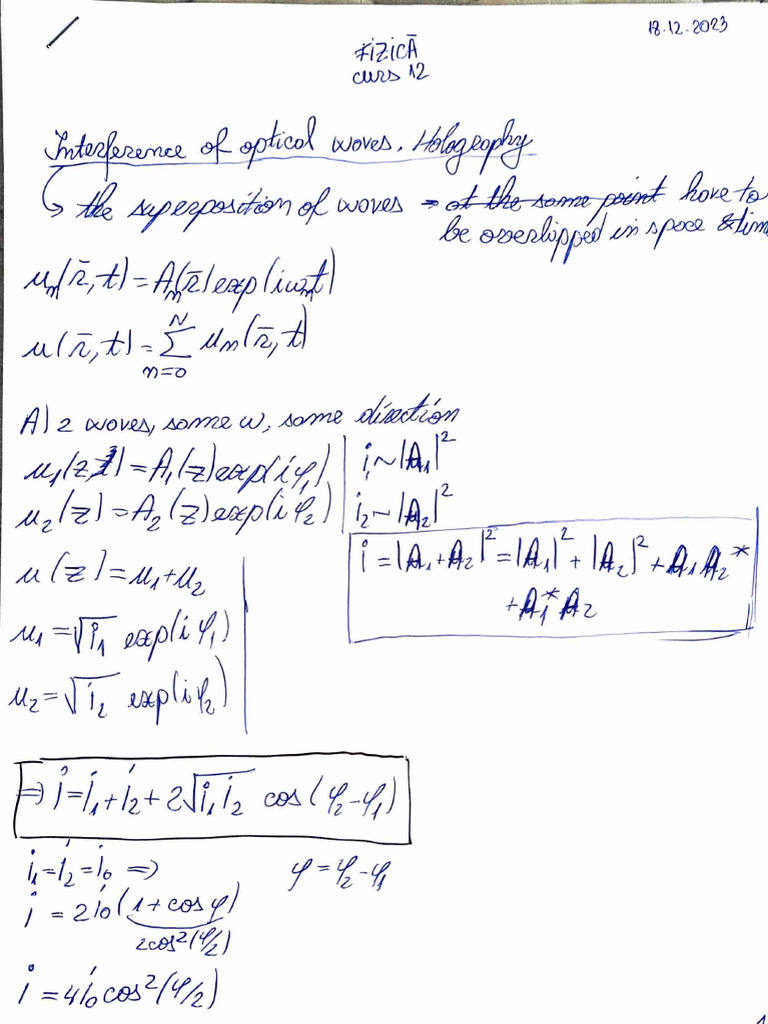 18.12.2023
FIZICĂ
curs 12
Interference of optical waves. Holography
↳ the superposition of waves → at the same point have to
be overlapped in space & tim
u_m(r̄,t) = A_m(r̄) exp(iω_m t)
u(r̄,t) = Σ_{m=0}^{N} u_m(r̄,t)
A) 2 waves, same ω, same direction
u₁(z,t) = A₁(z) exp(iφ₁) | i₁ ~ |A₁|²
u₂(z) = A₂(z) exp(iφ₂) | i₂ ~ |A₂|²
i = |A₁+A₂|² = |A₁|² + |A₂|² + A₁A₂*
+ A₁*A₂
u(z) = u₁+u₂
u₁ = √i₁ exp(iφ₁)
u₂ = √i₂ exp(iφ₂)
⇒ i = i₁+i₂+2√i₁i₂ cos(φ₂-φ₁)
i₁=i₂=i₀ ⇒ φ = φ₂-φ₁
i = 2i₀(1+cosφ)
2cos²(φ/2)
i = 4i₀cos²(φ/2)
1